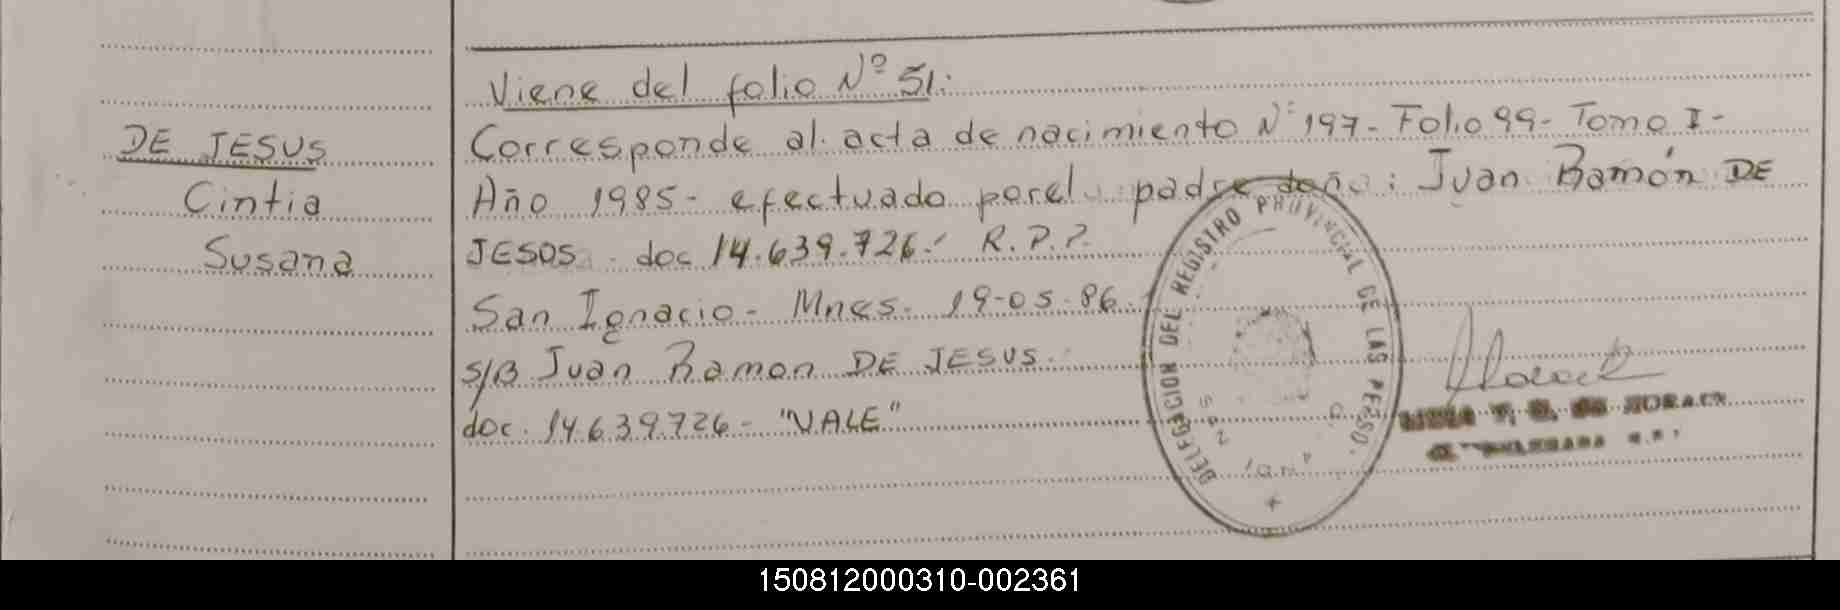 Viene del folio Nº 51.
DE JESUS
Cintia
Susana
Corresponde al acta de nacimiento Nº 197 - Folio 99 - Tomo I -
Año 1985 - efectuado por el padre doña: Juan Ramón DE
JESUS doc 14.639.726.- R.P.P.
San Ignacio - Mnes. 19-05-86.
S/B Juan Ramon DE JESUS.
doc. 14.639.726 - "VALE"
DELEGACION DEL REGISTRO PROVINCIAL DE LAS PERSO.
150812000310-002361